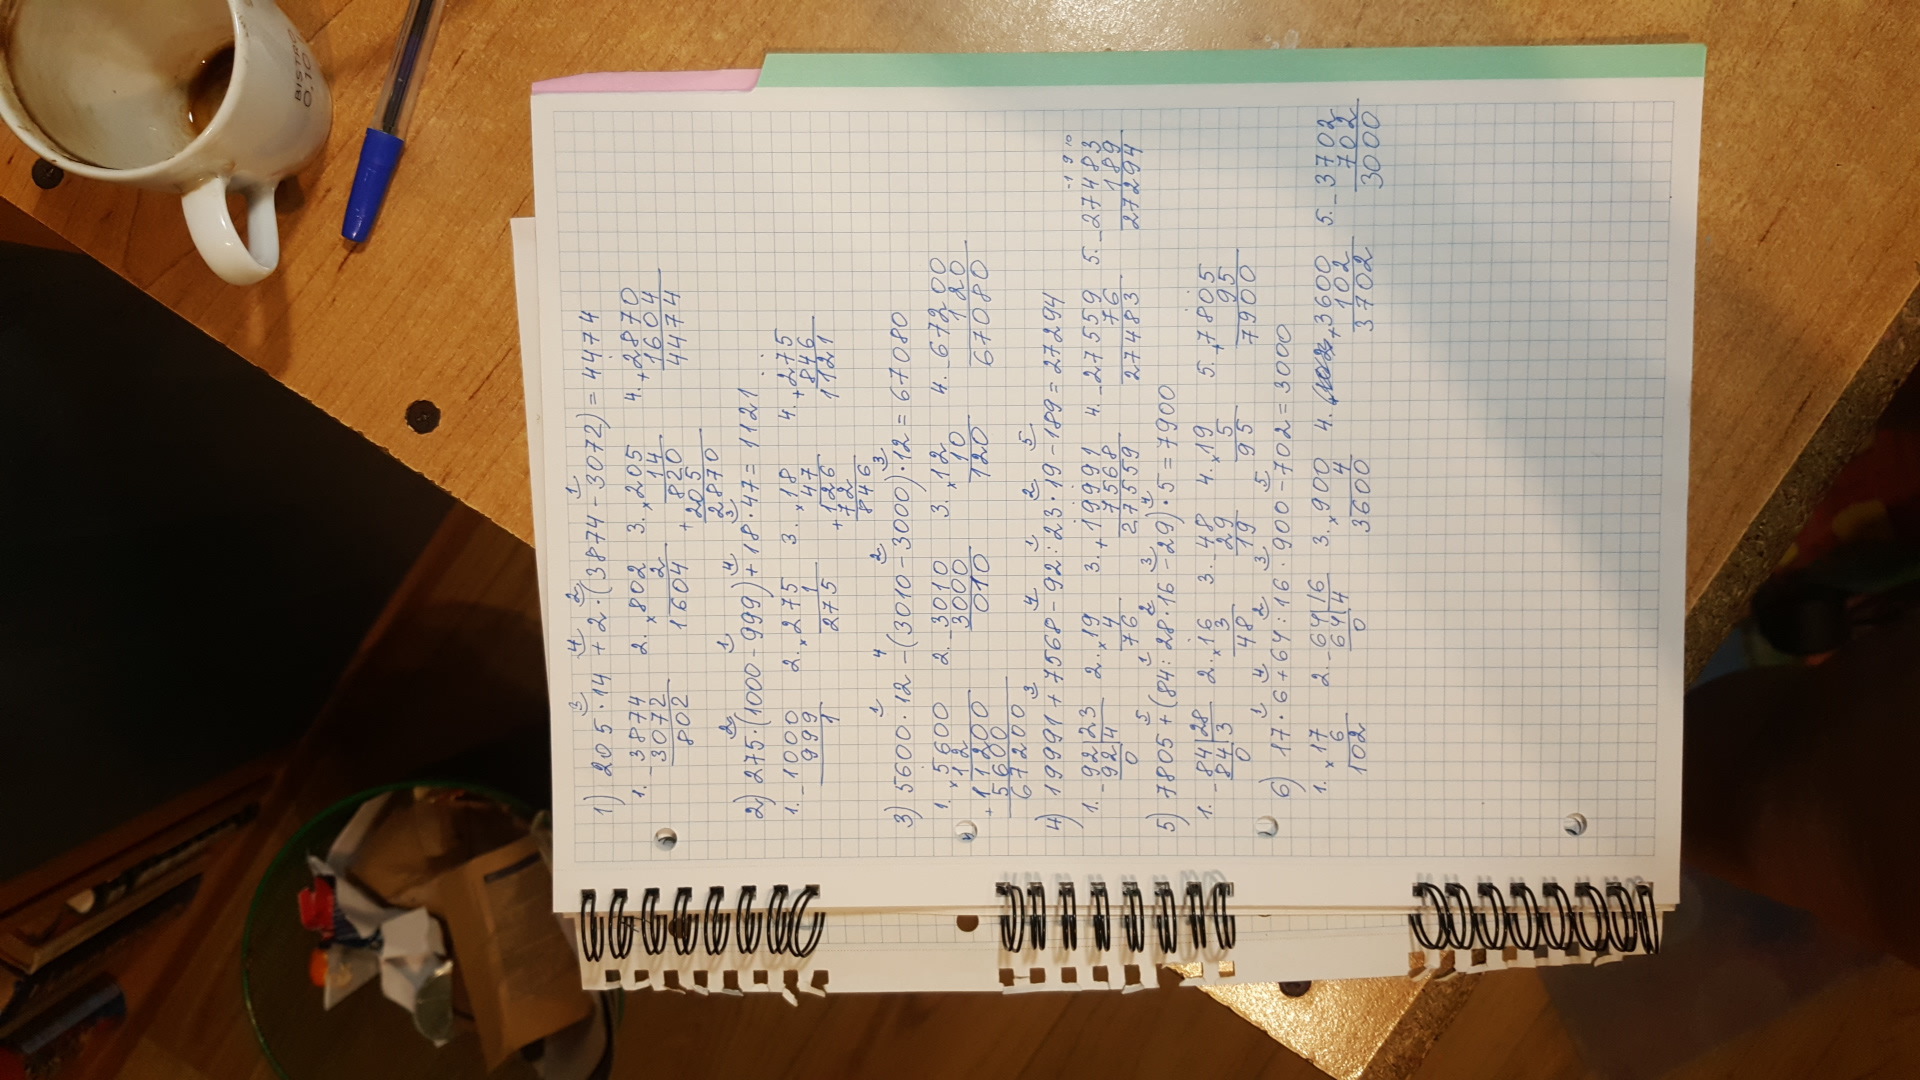 BISTRO
0,10
1) 205 · 14 + 2 · (3874 - 3072) = 4474
3 4 2 1
1. - 3874 2. × 802 3. × 205 4. + 2870
3072 2 14 1604
802 1604 + 820 4474
205
2870
2) 275 · (1000 - 999) + 18 · 47 = 1121
2 1 4 3
1. - 1000 2. × 275 3. × 18 4. + 275
999 1 47 846
1 275 + 126 1121
72
846
3) 5600 · 12 - (3010 - 3000) · 12 = 67080
1 4 2 3
1. × 5600 2. - 3010 3. × 12 4. - 67200
12 3000 10 120
+ 11200 010 120 67080
5600
67200
4) 19991 + 7568 - 92 : 23 · 19 - 189 = 27294
3 4 1 2 5
-1 9 10
1. - 92|23 2. × 19 3. + 19991 4. - 27559 5. - 27483
92|4 4 7568 76 189
0 76 27559 27483 27294
5) 7805 + (84 : 28 · 16 - 29) · 5 = 7900
5 1 2 3 4
1. - 84|28 2. × 16 3. - 48 4. × 19 5. + 7805
84|3 3 29 5 95
0 48 19 95 7900
6) 17 · 6 + 64 : 16 · 900 - 702 = 3000
1 4 2 3 5
1. × 17 2. - 64|16 3. × 900 4. + 3600 5. - 3702
6 64|4 4 102 702
102 0 3600 3702 3000